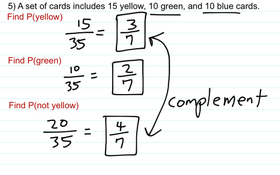 5) A set of cards includes 15 yellow, 10 green, and 10 blue cards.
Find P(yellow)
15/35 = 3/7
Find P(green)
10/35 = 2/7
complement
Find P(not yellow)
20/35 = 4/7